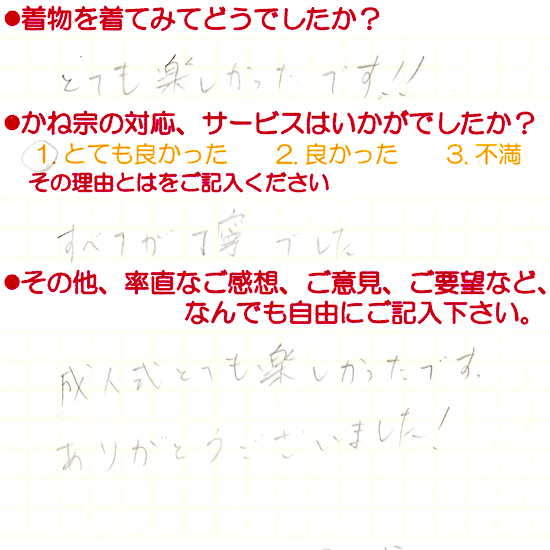 ●着物を着てみてどうでしたか？
とても楽しかったです!!
●かね宗の対応、サービスはいかがでしたか？
1. とても良かった 2. 良かった 3. 不満
その理由とはをご記入ください
すべてが丁寧でした
●その他、率直なご感想、ご意見、ご要望など、
なんでも自由にご記入下さい。
成人式とても楽しかったです。
ありがとうございました!